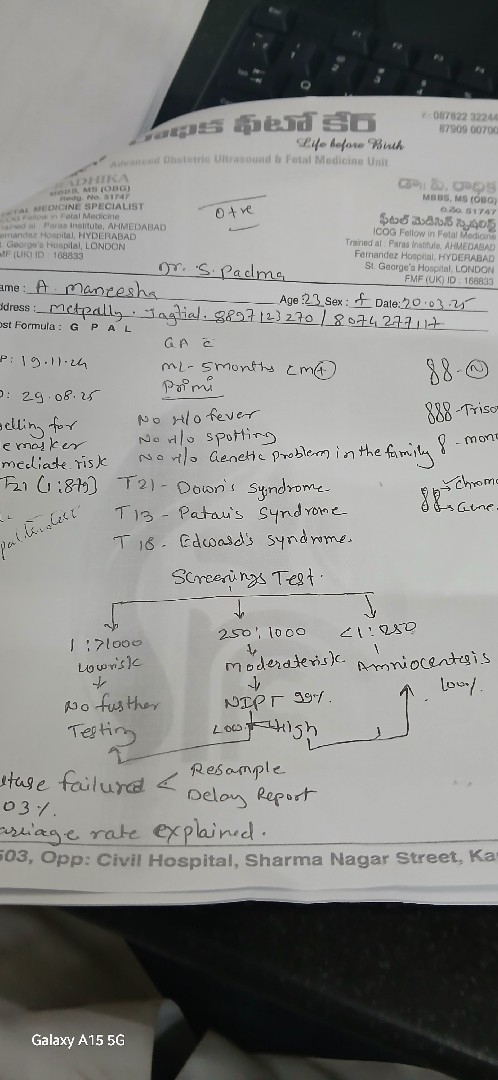 ఫీటల్ కేర్
✆: 087822 32244
87909 00700
Life before Birth
Advanced Obstetric Ultrasound & Fetal Medicine Unit
RADHIKA
MBBS, MS (OBG)
Redg. No. 51747
FETAL MEDICINE SPECIALIST
ICOG Fellow in Fetal Medicine
Trained at : Paras Institute, AHMEDABAD
Fernandez Hospital, HYDERABAD
St. George's Hospital, LONDON
FMF (UK) ID : 168833
O +ve
డా॥ పి. రాధిక
MBBS, MS (OBG)
రి.నెం. 51747
ఫీటల్ మెడిసిన్ స్పెషలిస్ట్
ICOG Fellow in Fetal Medicine
Trained at: Paras Institute, AHMEDABAD
Fernandez Hospital, HYDERABAD
St. George's Hospital, LONDON
FMF (UK) ID : 168833
Dr. S. Padma
ame : A. Maneesha Age : 23 Sex : f Date: 20.03.25
ddress : Metpally. Jagtial. 8897123270 / 8074277117
ost Formula : G P A L
GA c
P: 19.11.24
ML - 5months CM+
88 - N
Primi
D: 29.08.25
888 - Triso
elling for
No H/o fever
e marker
No H/o spotting
mediate risk
No H/o Genetic problem in the family
8 - mono
T21 (1:879)
T21 - Down's Syndrome
88 Chromo
Gene
T13 - Patau's Syndrome
T18 - Edward's Syndrome.
Screenings Test.
1 : >1000
250 : 1000
<1 : 250
Low risk
Moderate risk
Amniocentesis
100%
No further
NIPT 99%
Testing
Low High
failured < Resample
Delay Report
03%.
arriage rate explained.
503, Opp: Civil Hospital, Sharma Nagar Street, Ka
Galaxy A15 5G